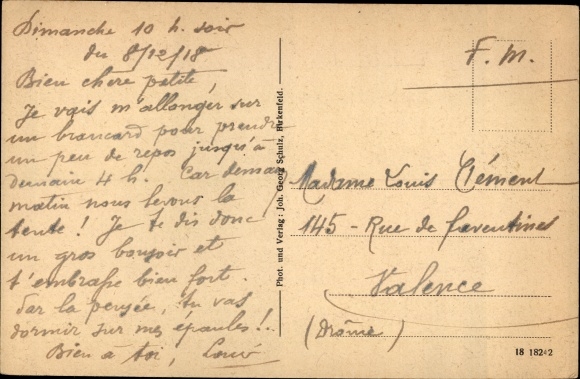 Dimanche 10 h. soir
du 8/12/18
Bien chère petite,
Je vais m'allonger sur
un brancard pour prendre
un peu de repos jusqu'à
demain 4 h. Car demain
matin nous levons la
tente ! Je te dis donc
un gros bonsoir et
t'embrasse bien fort.
Par la pensée, tu vas
dormir sur mes épaules !..
Bien à toi, Louis
Phot. und Verlag: Joh. Georg Schulz, Birkenfeld.
F. M.
Madame Louis Clément
145 - Rue de Faventines
Valence
(Drôme)
18 18242